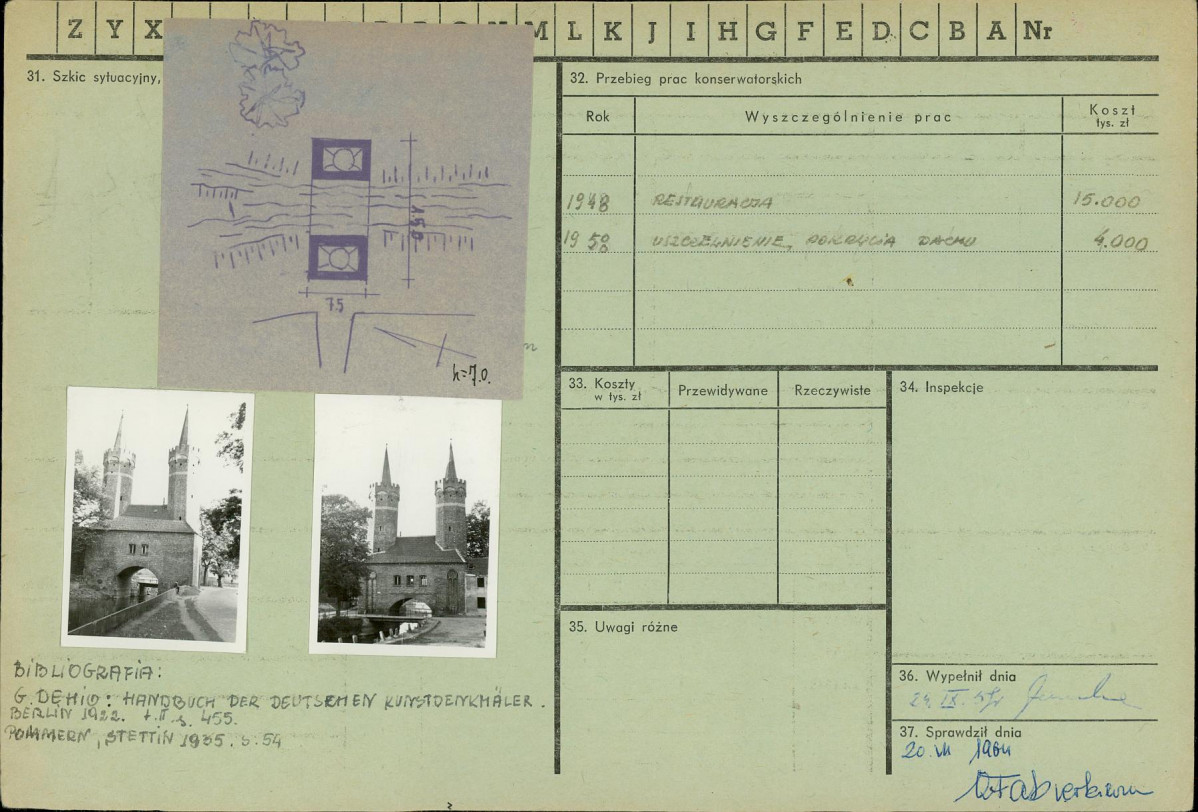 Z Y X M L K J I H G F E D C B A Nr
31. Szkic sytuacyjny,
15.0
7.5
h=7.0.
BIBLIOGRAFIA:
G. DEHIO: HANDBUCH DER DEUTSCHEN KUNSTDENKMÄLER.
BERLIN 1922. t. II s. 455.
POMMERN, STETTIN 1935. s. 54
32. Przebieg prac konserwatorskich
Rok Wyszczególnienie prac Koszt
tys. zł
1948 RESTAURACJA 15.000
1958 USZCZELNIENIE POKRYCIA DACHU 4.000
33. Koszty
w tys. zł
Przewidywane
Rzeczywiste
34. Inspekcje
35. Uwagi różne
36. Wypełnił dnia
24. IX.
37. Sprawdził dnia
20. 1964